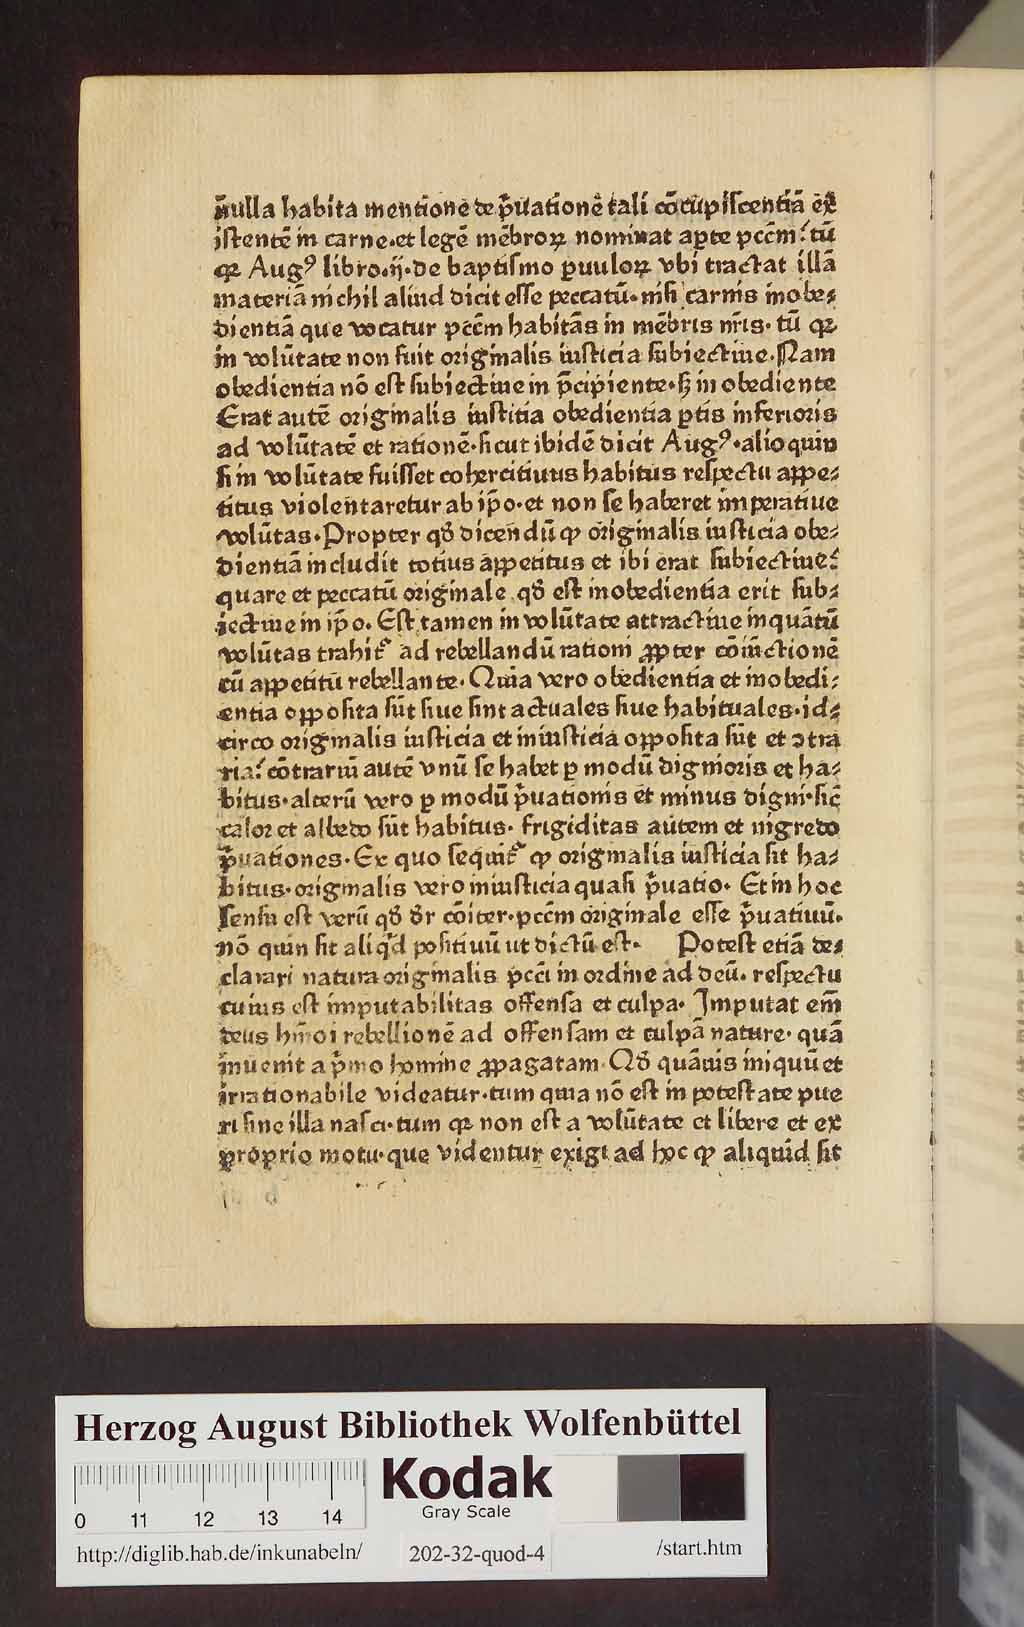 nulla habita mentionē de p̄uationē tali cōcupiscentiā ex
istentē in carne·et legē mēbroꝝ nominat aꝑte pccm̄: tū
qꝛ Augꝰ libro·ij·de baptismo ꝑuuloꝝ vbi tractat illā
materiā nichil aliud dicit esse peccatū·nisi carnis inobe⸗
dientiā que vocatur pccm̄ habitās in mēbris nr̄is· tū qꝛ
in volūtate non fuit originalis iusticia subiectiue·Nam
obedientia nō est subiectiue in p̄cipiente·sꝫ in obediente
Erat autē originalis iustitia obedientia ꝑtis inferioris
ad volūtatē et rationē·sicut ibidē dicit Augꝰ·alioquin
si in volūtate fuisset cohercitiuus habitus respectu appe⸗
titus violentaretur ab ip̄o·et non se haberet imperatiue
volūtas·Propter qd̓ dicendū ꝙ originalis iusticia obe⸗
dientiā includit totius appetitus et ibi erat subiectiue:
quare et peccatū originale qd̓ est inobedientia erit sub⸗
iectiue in ip̄o. Est tamen in volūtate attractiue inquātū
volūtas trahit᷑ ad rebellandū rationi ꝓpter cōiūctionē
cū appetitū rebellante· Quia vero obedientia et inobedi⸗
entia opposita sūt siue sint actuales siue habituales·id⸗
circo originalis iusticia et iniusticia opposita sūt et ↄtra
ria: cōtrariū autē vnū se habet ꝑ modū dignioris et ha⸗
bitus·alterū vero ꝑ modū p̄uationis et minus digni·sic̄
calor et albedo sūt habitus· frigiditas autem et nigredo
p̄uationes·Ex quo sequit᷑ ꝙ originalis iusticia sit ha⸗
bitus·originalis vero iniusticia quasi p̄uatio· Et in hoc
sensu est verū qd̓ dr̄ cōiter·pccm̄ originale esse p̄uatiuū·
nō quin sit aliqd̓ positiuū ut dictū est· Potest etiā de⸗
clarari natura originalis pcci in ordine ad deū· respectu
cuius est imputabilitas offensa et culpa· Imputat em̄
deus hm̄oi rebellionē ad offensam et culpā nature· quā
inuenit a p̄mo homine ꝓpagatam· Qd̓ quāuis iniquū et
irrationabile videatur·tum quia nō est in potestate pue
ri sine illa nasci·tum qꝛ non est a volūtate et libere et ex
proprio motu·que videntur exigi ad hoc ꝙ aliquid sit
Herzog August Bibliothek Wolfenbüttel
Kodak
Gray Scale
0 11 12 13 14
http://diglib.hab.de/inkunabeln/ 202-32-quod-4 /start.htm